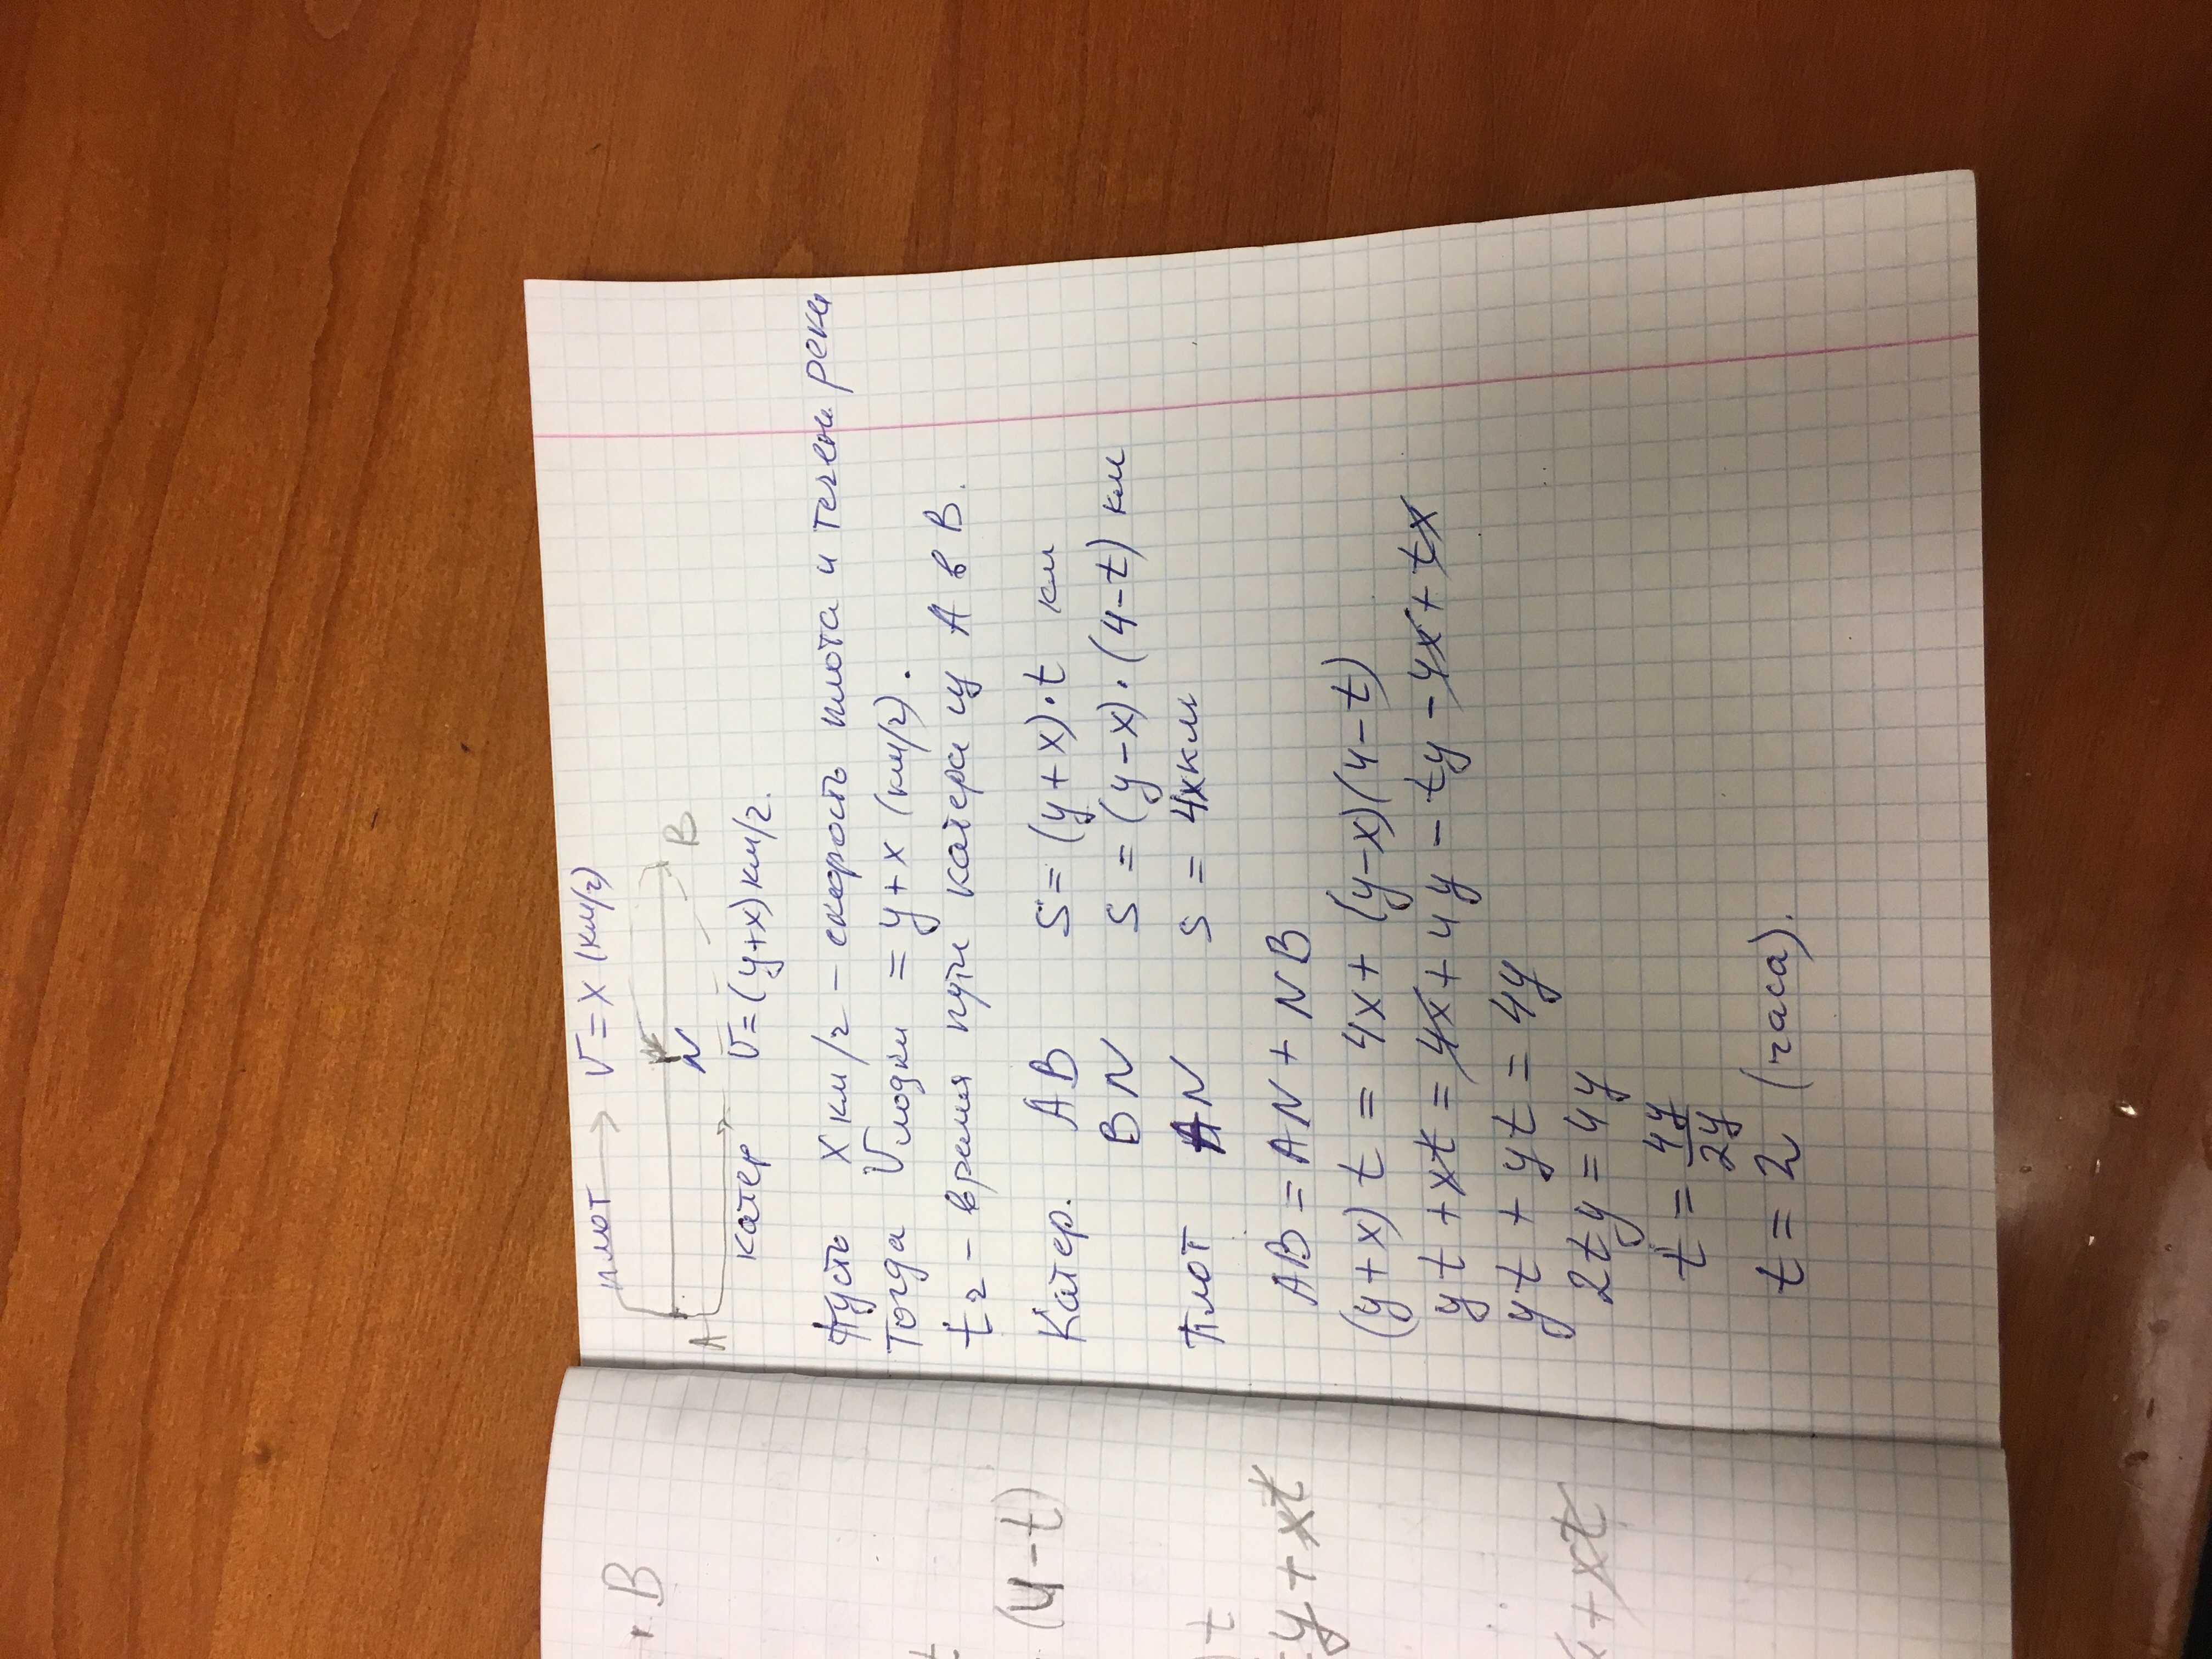 В
(4-t)
t
y+xt
+xt
плот V=x (км/ч)
N В
А
катер V=(y+x) км/ч.
Пусть x км/ч - скорость плота и течен. реки
Тогда Vлодки = y+x (км/ч).
t ч - время пути катера из А в В.
Катер. АВ S=(y+x)·t км
BN S=(y-x)·(4-t) км
Плот AN S=4x км
AB=AN+NB
(y+x)t=4x+(y-x)(4-t)
yt+xt=4x+4y-ty-4x+tx
yt+yt=4y
2ty=4y
t=4y/2y
t=2 (часа).